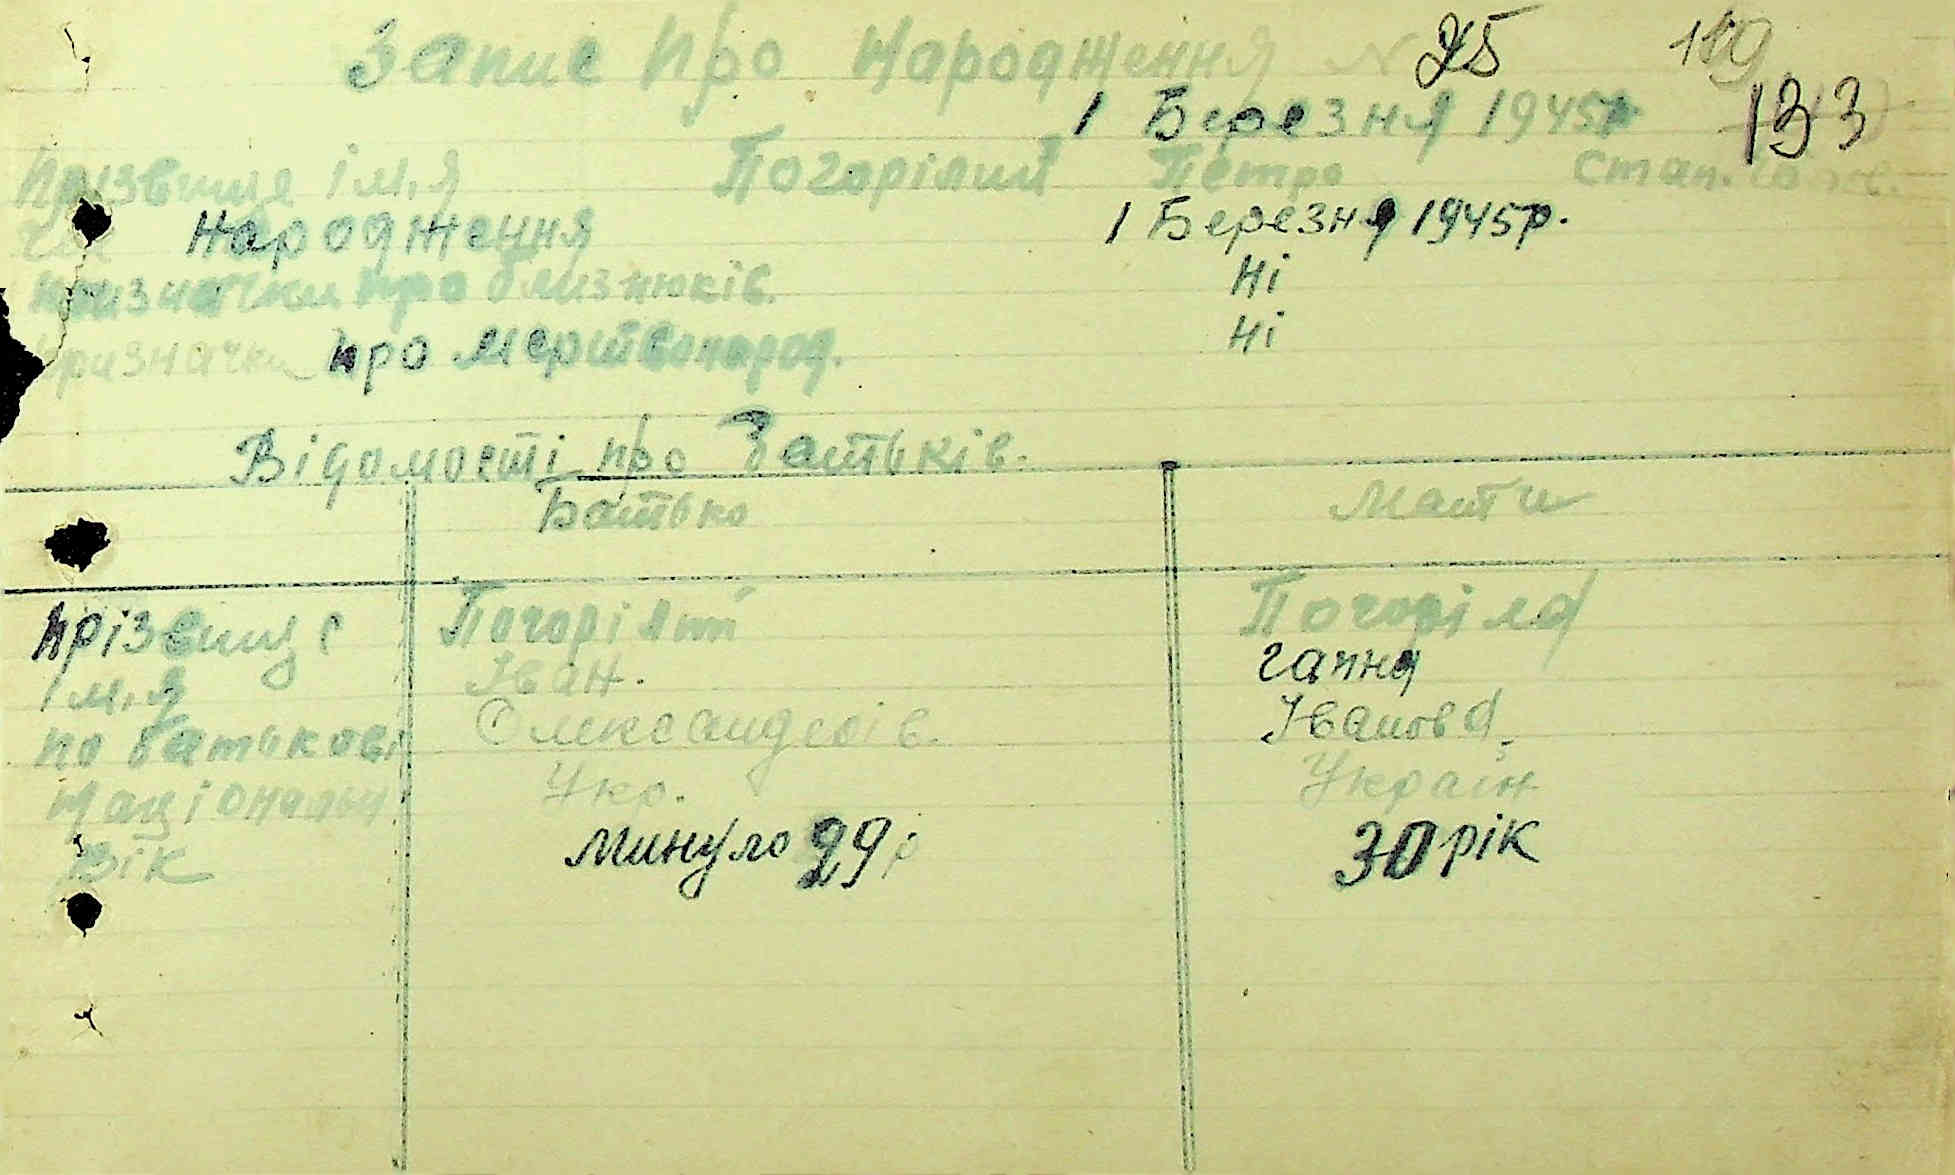 Запис про народження N 25 119
1 Березня 1945р 133
Призвище ім,я Погорілий Петро стать чолов.
Час народження 1 Березня 1945р.
призначки про близнюків. Ні
призначки про мертвонарод. Ні
Відомості про батьків.
Батько Мати
прізвище Погорілий Погоріла
ім,я Іван. Ганна
по батькові Олександрів. Іванова
націонольн Укр. Україн
Вік минуло 29 р 30 рік